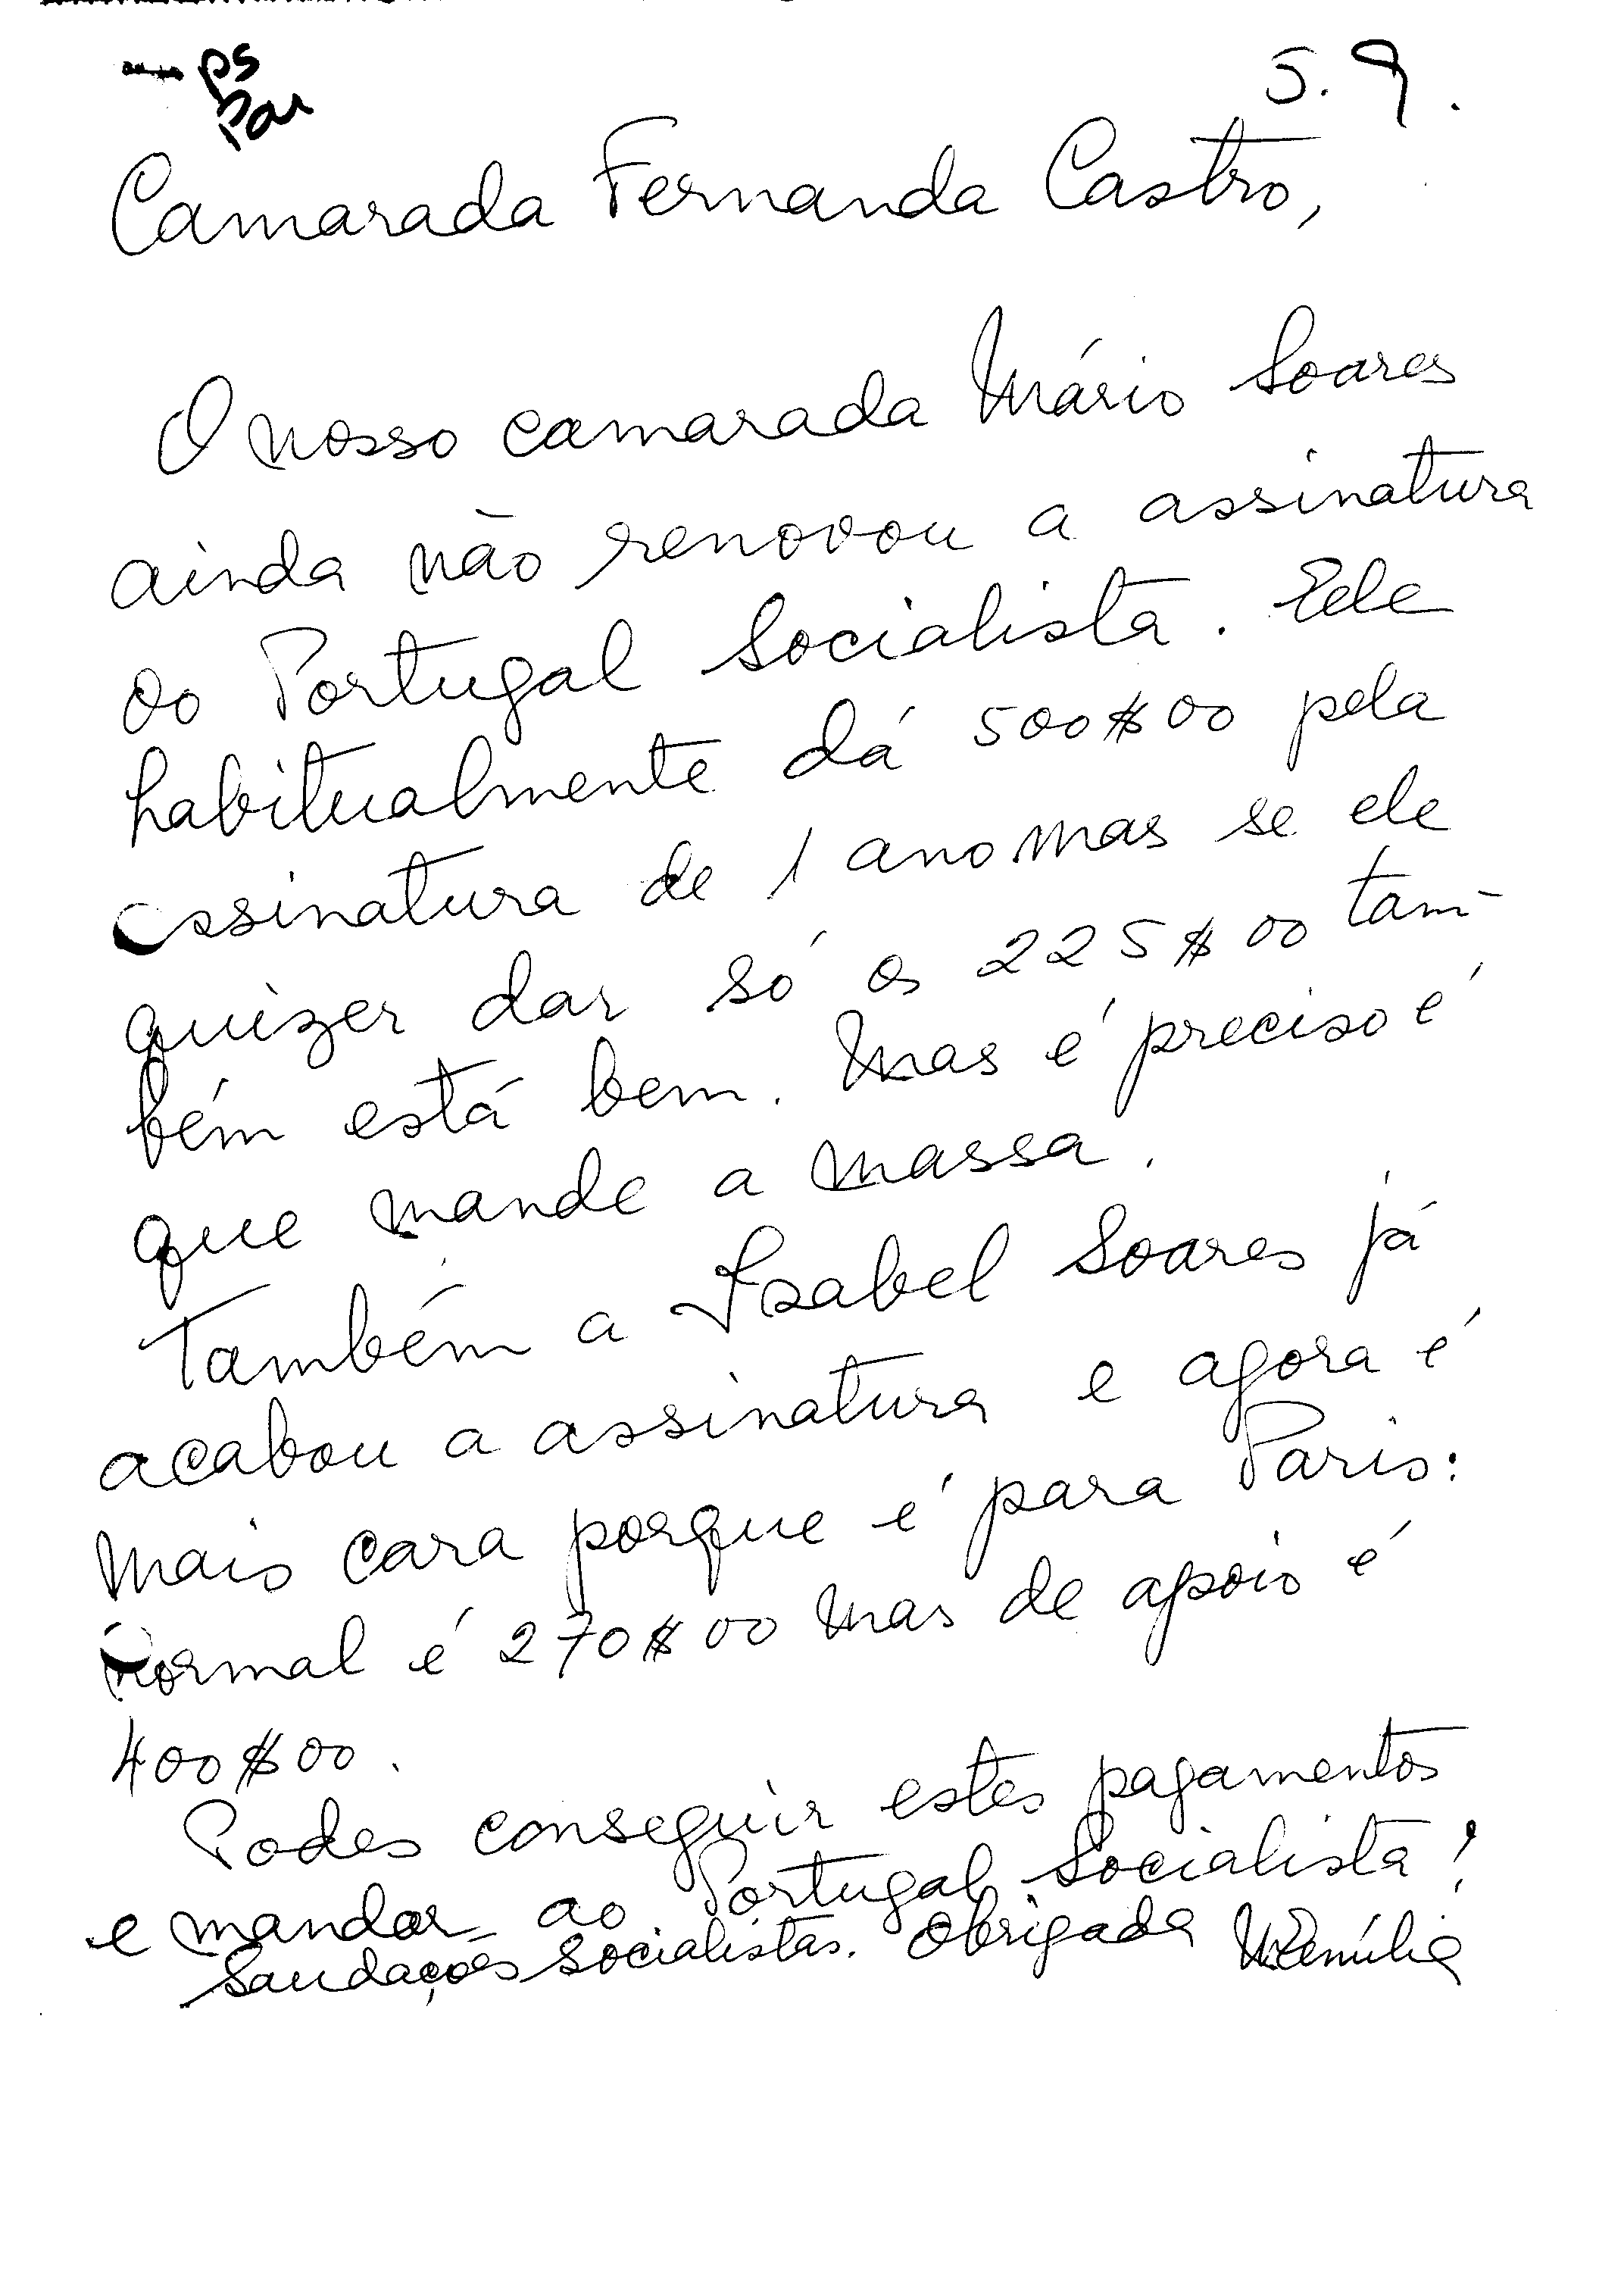 PS
Par
5. 9.
Camarada Fernanda Castro,
O nosso camarada Mário Soares
ainda não renovou a assinatura
do Portugal Socialista. Ele
habitualmente dá 500$00 pela
assinatura de 1 ano mas se ele
quizer dar só os 225$00 tam-
bém está bem. Mas é preciso é
que mande a massa.
Também a Isabel Soares já
acabou a assinatura e agora é
mais cara porque é para Paris:
normal é 270$00 mas de apoio é
400$00.
Podes conseguir estes pagamentos
e mandar ao Portugal Socialista?
Saudações socialistas. Obrigada